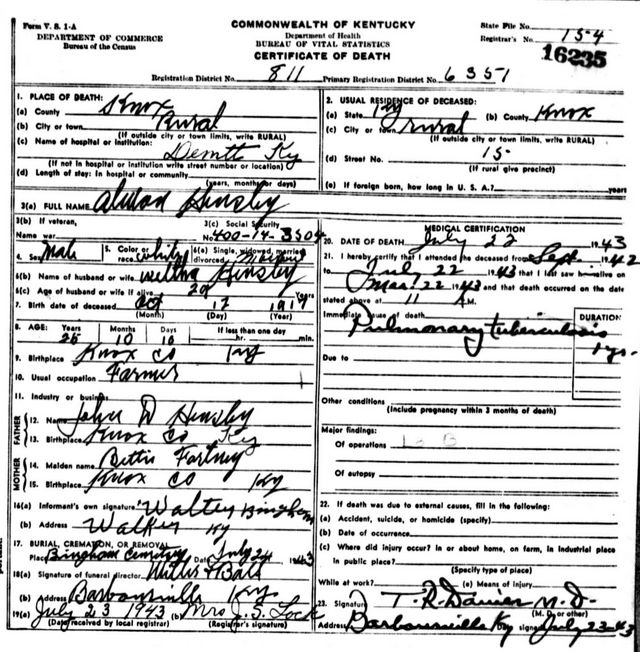 Form V. S. 1-A
DEPARTMENT OF COMMERCE
Bureau of the Census
COMMONWEALTH OF KENTUCKY
Department of Health
BUREAU OF VITAL STATISTICS
CERTIFICATE OF DEATH
State File No.
Registrar's No. 154
16235
Registration District No. 811 Primary Registration District No. 6351
1. PLACE OF DEATH:
(a) County Knox
(b) City or town Rural
(If outside city or town limits, write RURAL)
(c) Name of hospital or institution:
Ky
(If not in hospital or institution write street number or location)
(d) Length of stay: In hospital or community
(years, months or days)
2. USUAL RESIDENCE OF DECEASED:
(a) State Ky (b) County Knox
(c) City or town rural
(If outside city or town limits, write RURAL)
(d) Street No. 15
(If rural give precinct)
(e) If foreign born, how long in U. S. A.? years
3(a) FULL NAME Hensley
3(b) If veteran,
Name war
3(c) Social Security
No. 400-14-3504
4. Sex Male 5. Color or race White 6(a) Single, widowed, married, divorced Married
6(b) Name of husband or wife Hensley
6(c) Age of husband or wife if alive 29 Years
7. Birth date of deceased Oct 17 1917
(Month) (Day) (Year)
8. AGE: Years Months Days If less than one day
25 10 10 hr. min.
9. Birthplace Knox Co Ky
10. Usual occupation Farmer
11. Industry or business
FATHER
12. Name John D Hensley
13. Birthplace Knox Co Ky
MOTHER
14. Maiden name Bettie Fortney
15. Birthplace Knox Co Ky
16(a) Informant's own signature Walter Bingham
(b) Address Walker Ky
17. BURIAL, CREMATION, OR REMOVAL
Place Bingham Cemetery Date July 24 1943
18(a) Signature of funeral director
(b) Address Barbourville Ky
19(a) July 23 1943 (b) Mrs J. S. Lock
(Date received by local registrar) (Registrar's signature)
MEDICAL CERTIFICATION
20. DATE OF DEATH July 22 1943
21. I hereby certify that I attended the deceased from Sept 1942
to July 22 1943 that I last saw h alive on
22 1943 and that death occurred on the date
stated above at 11 A M.
Immediate cause of death
Pulmonary tuberculosis
DURATION
1 yr.
Due to
Other conditions
(Include pregnancy within 3 months of death)
Major findings:
Of operations
Of autopsy
22. If death was due to external causes, fill in the following:
(a) Accident, suicide, or homicide (specify)
(b) Date of occurrence
(c) Where did injury occur? In or about home, on farm, in industrial place
in public place?
(Specify type of place)
While at work? (e) Means of injury
23. Signature T. R. Davies M. D.
(M. D. or other)
Address Barbourville Ky signed July 23-43